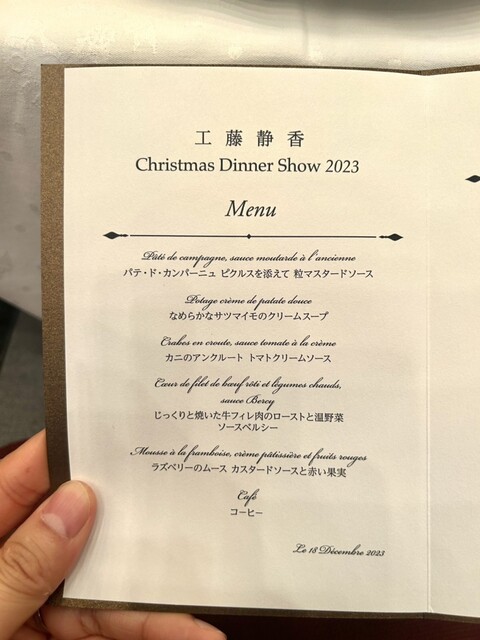 工藤静香
Christmas Dinner Show 2023
Menu
Pâté de campagne, sauce moutarde à l'ancienne
パテ・ド・カンパーニュ ピクルスを添えて 粒マスタードソース
Potage crème de patate douce
なめらかなサツマイモのクリームスープ
Crabes en croute, sauce tomate à la crème
カニのアンクルート トマトクリームソース
Cœur de filet de bœuf rôti et légumes chauds,
sauce Bercy
じっくりと焼いた牛フィレ肉のローストと温野菜
ソースベルシー
Mousse à la framboise, crème pâtissière et fruits rouges
ラズベリーのムース カスタードソースと赤い果実
Café
コーヒー
Le 18 Décembre 2023